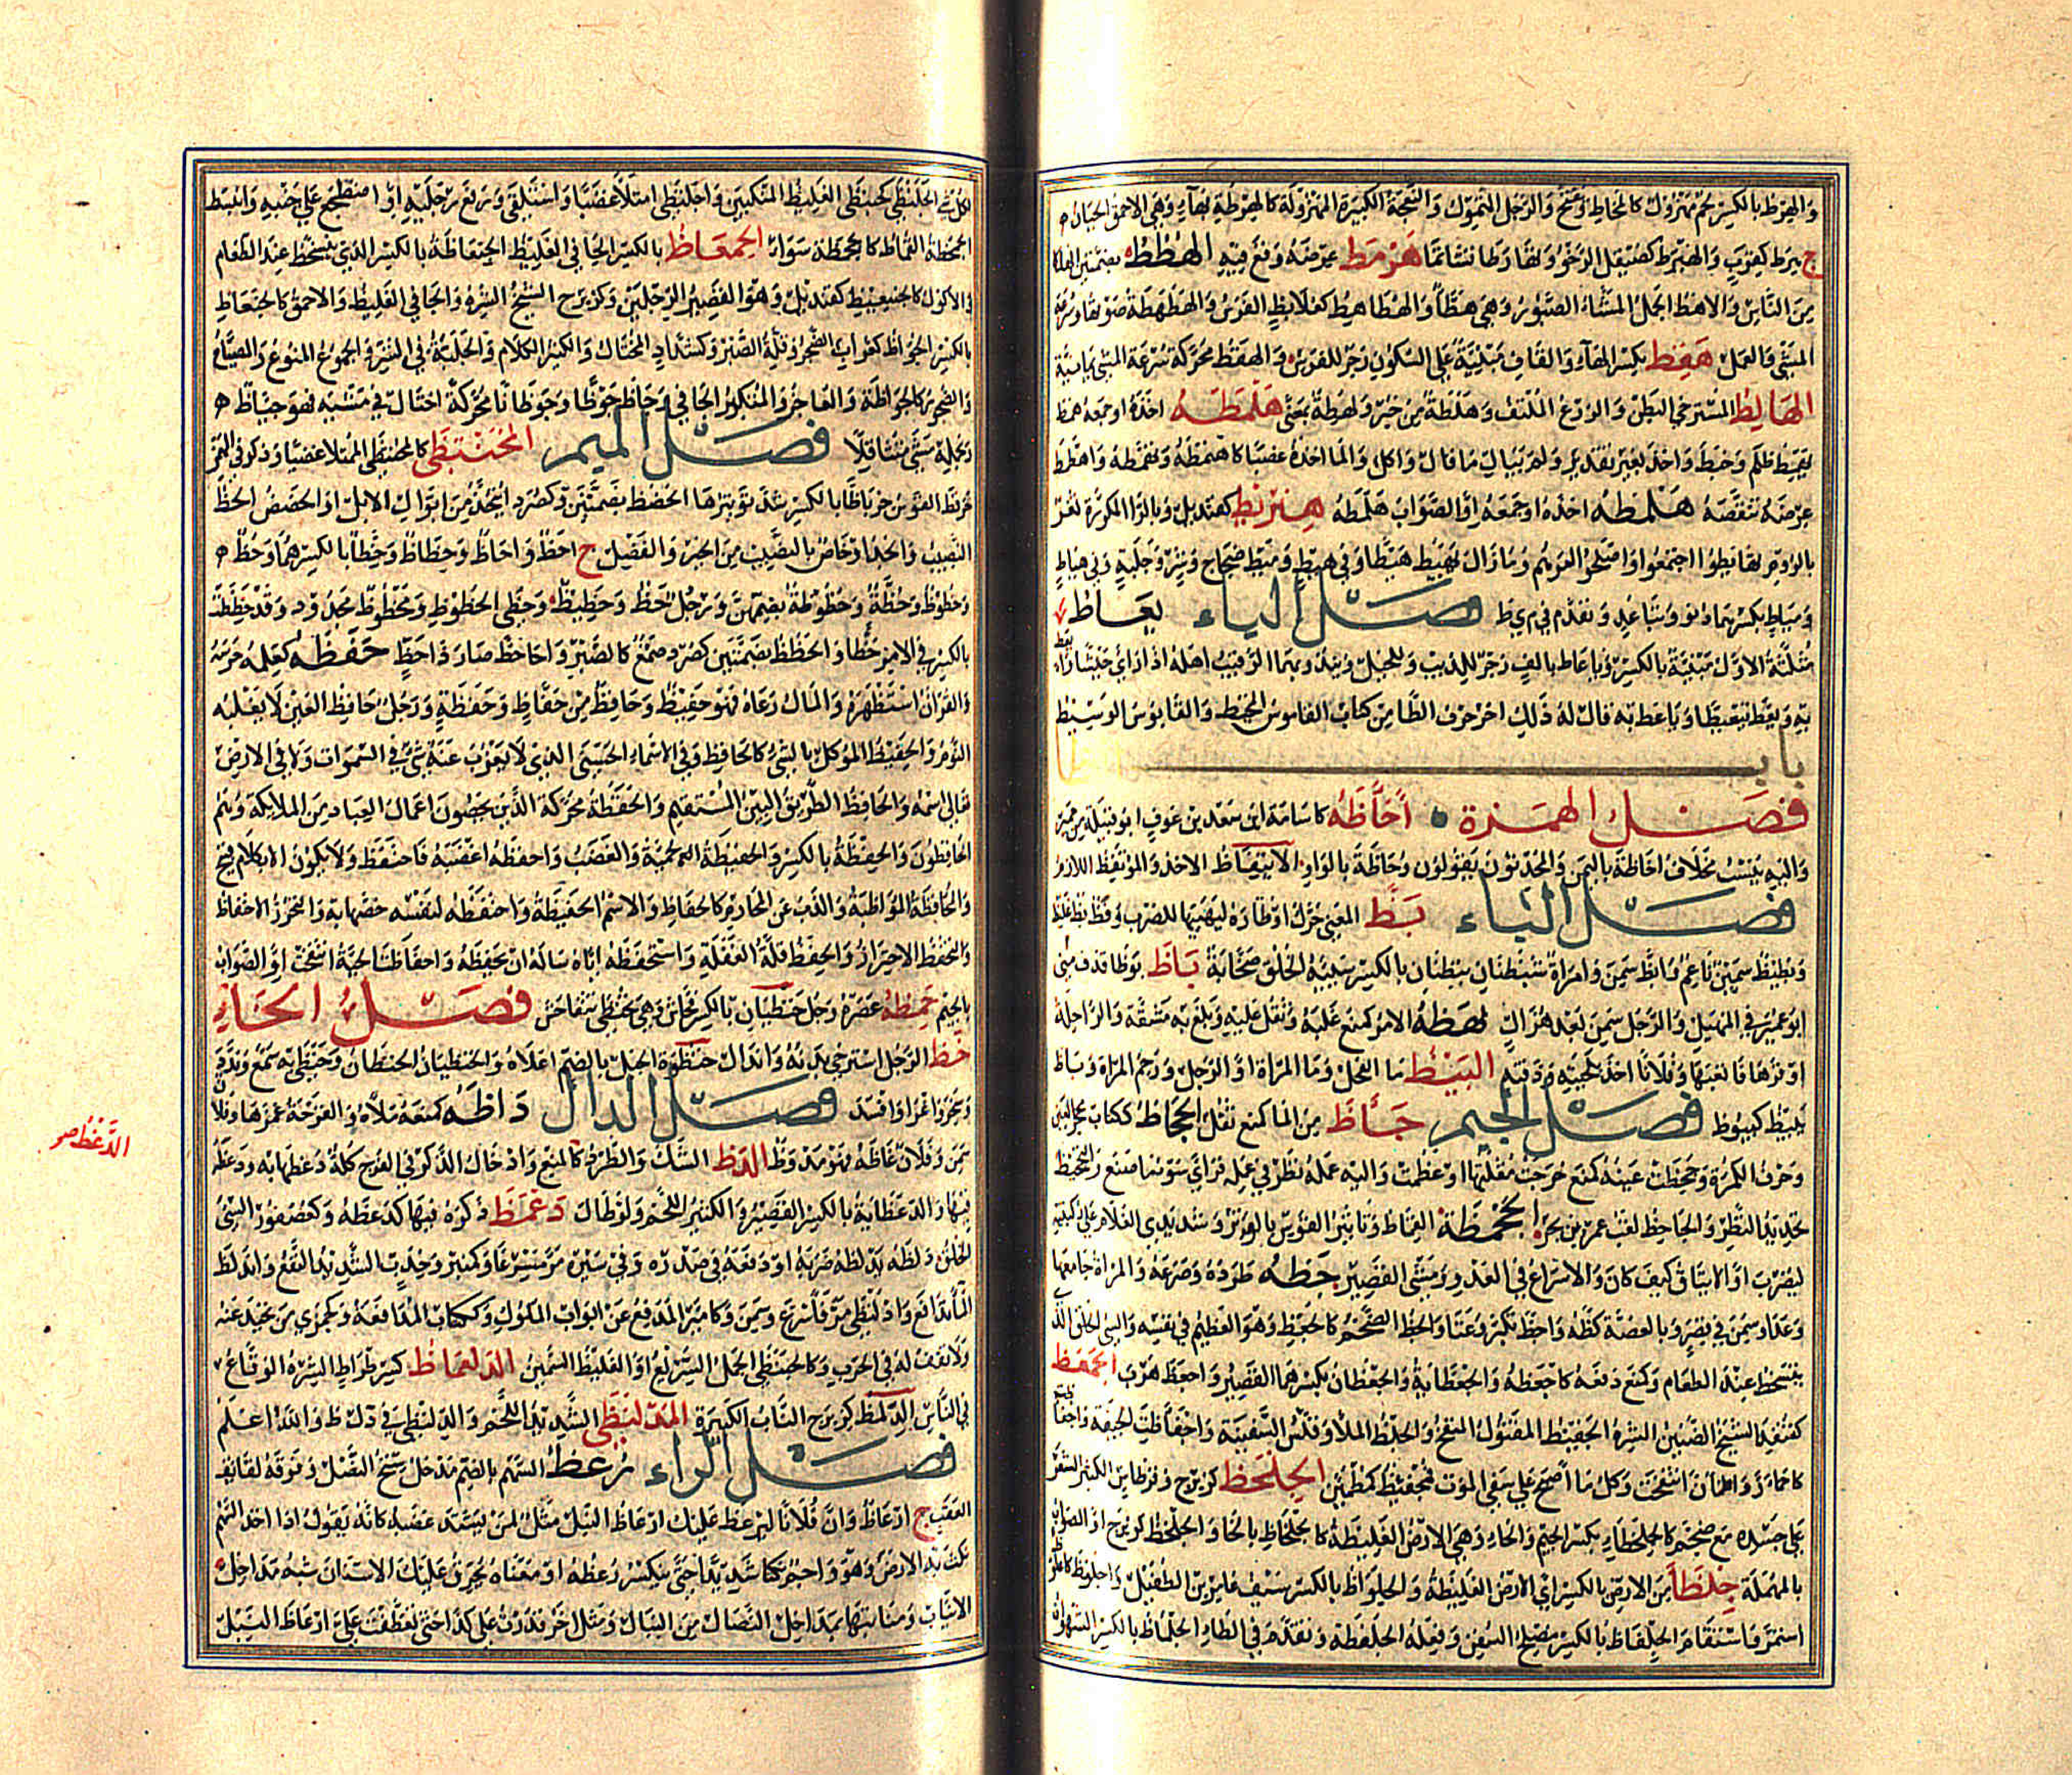 والهرط بالكسر لحم مهزول كالمخاط وتفتح والرجل المتمول والنعجة الكبيرة المهزولة كالهرطة بهاء وهي الاحمق الجبان
ج هرط كقرب والهيرط كصيقل الرخو وتهارطا تشاتما هرمط عرضه وقع فيه الهطط بضمتين الهلكا
من الناس والاهط الجمل المشاء الصبور وهي هطاء والهطاهط كعلابط الفرس والهطهطة صوتها وسرعة
المشي والعمل هقط بكسر الهاء والقاف مبنية على السكون زجر للفرس والهقط محركة سرعة المشي يمانية
الهالط المسترخي البطن والزرع الملتف وهلطة من خبر ولهطة بمعنى هلمطه اخذه او جمعه همط
يهمط ظلم وخبط واخذ بغير تقدير ولم يبال ما قال واكل والماء اخذه غصبا كاهتمطه وتهمطه واهتمط
عرضه تنقصه هلمطه اخذه او جمعه او الصواب هلمطه هنزبط كقنديل وبالزا المكررة ثغر
بالروم تهايطوا اجتمعوا واصلحوا امرهم وما زال يهيط هيطا وفي هيط وميط ضجاج وشر وجلبة وفي هياط
ومياط بكسرهما دنو وتباعد وتقدم في م ي ط فصل الياء يعاط
مثلثة الاول مبنية بالكسر وياعاط بالف زجر للذيب وللخيل وينذر بهما الرقيب اهله اذا راى جيشا
به ويعط تيعيطا وياعط به قال له ذلك اخر حرف الطا من كتاب القاموس المحيط والقابوس الوسيط
باب الظا
فصل الهمزة احاظه كاسامة ابن سعد بن عوف ابو قبيلة من حمير
واليه ينسب مخلاف احاظة باليمن والمحدثون يقولون وحاظة بالواو الايتقاظ الاخذ والموتقظ اللازم
فصل الباء بظ المغني حرك اوتاره ليهيئها للضرب وفظ بظ غليظ
وبظيظ سمين ناعم وابظ سمين وامراة شنظيان بنظيان بالكسر سيئة الخلق صخابة باظ بوظا قذف منى
ابو عمير في المهبل والرجل سمن بعد هزال بهظه الامر كمنع غلبه وثقل عليه وبلغ به مشقة والراحلة
اوقرها فاتعبها وفلانا اخذ بلحيته وذقنه البيظ ما الفحل وما المراة او الرجل ورحم المراة وباظ
يبيظ كيبوظ فصل الجيم جاظ من الماء كمنع ثقل الجحاظ ككتاب محجر العين
وحرف الكمرة وجحظت عينه كمنع خرجت مقلتها او عظمت واليه عمله نظر في عمله فراى سوء ما صنع والتجحيظ
تحديد النظر والجاحظ لقب عمرو بن بحر الجحمظة القماط وتاتير القوس بالوتر وشد يدي الغلام على ركبتيه
ليضرب او الايثاق كيف كان والاسراع في العدو ومشي القصير جظه طرده وصرعه والمراة جامعها
وعدا وسمن في قصر وبالغصة كظه واجظ تكبر وعتا والجظ الضخم كالجعظ وهو العظيم في نفسه والسيئ الخلق الذي
يتسخط عند الطعام وكمنع دفعه كاجعظه والجعظاية والجعظان بكسرهما القصير واجعظ هرب الجعمظ
كقنفذ الشيخ الضنين الشره الجفيظ المقتول المنتفخ والجفظ الملأ وقلس السفينة واجفاظت الجيفة واجفا
كاحمار واطمأن انتفخت وكل ما اصبح على شفى الموت فمجفئظ كمطمئن الجلحظ كزبرج وقرطاس الكثير الشعر
على جسده مع ضخم كالجلحظاء بكسر الجيم والحاء وهي الارض الغليظة كالجلخاظ بالخا والجلخظ كزبرج او الصواب
بالمهملة جلظأ من الارض بالكسر اي الارض الغليظة والجلواظ بالكسر سيف عامر بن الطفيل واجلوظ كاعلوط
استمر واستقام والجلفاظ بالكسر مصلح السفن وفعله الجلفظة وتقدم في الطاء الجلماظ بالكسر الشهوان
لكل شي الجلنظى كحبنطى الغليظ المنكبين واجلنظى امتلأ غضبا واستلقى ورفع رجليه او اضطجع على جنبه وانبسط
الجمحظة القماط كالجحمظة سواء الجمعاظ بالكسر الجافي الغليظ الجنعاظة بالكسر الذي يتسخط عند الطعام
والاكول كالجنعيظ كقنديل وهو القصير الرجلين وكزبرج الشيخ الشره والجافي الغليظ والاحمق كالجنعاظ
بالكسر الجواظ كغراب الضجر وقلة الصبر وكشداد المختال والكثير الكلام والجلبة في الشر والجموع المنوع والصياح
والضجر كالجواظة والفاجر والمتكبر الجافي وجاظ جوظا وجوظانا محركة اختال في مشيته فهو جياظ
وبحمله مشى متثاقلا فصل الميم المحبنظى كالمحبنطي الممتلا غضبا وذكر في الهمز
حربظ القوس حرباظا بالكسر شد توتيرها الحضظ بضمتين وكصرد يتخذ من ابوال الابل او الحضض الحظ
النصيب والجد او خاص بالنصيب من الخير والفضل ج احظ واحاظ وحظاظ وحظاء بالكسر هما وحظ
وحظوظ وحظة وحظوظة بضمهن ورجل حظ وحظيظ وحظي الحظوظ ومحظوظ مجدود وقد حظظت
بالكسر في الامر حظا والحظظ بضمتين كصرد صمغ كالصبر واحاظظ صار ذا حظ حفظه كعلمه حرسه
والقران استظهره والمال رعاه فهو حفيظ وحافظ من حفاظ وحفظة ورجل حافظ العين لا يغلبه
النوم والحفيظ الموكل بالشيء كالحافظ وفي الاسماء الحسنى الذي لا يعزب عنه شيء في السموات ولا في الارض
تعالى اسمه والحافظ الطريق البين المستقيم والحفظة محركة الذين يحصون اعمال العباد من الملائكة وهم
الحافظون والحفظة بالكسر والحفيظة الحمية والغضب واحفظه اغضبه فاحتفظ ولا يكون الا بكلام قبيح
والمحافظة المواظبة والذب عن المحارم كالحفاظ والاسم الحفيظة واحتفظه لنفسه خصها به والتحرز الاحفاظ
والتحفظ الاحتراز والحفظ قلة الغفلة واستحفظه اياه ساله ان يحفظه واحفاظت الحية انتفخت او الصواب
بالجيم حمظه عصره رجل حنظيان بالكسر فحاش وهي تحنظي تتفاحش فصل الخاء
خظ الرجل استرخى بدنه واندال خنظوة الجبل بالضم اعلاه والخنظيان الخنظان وخنظى به سمع وندد
وسخر واغرا وافسد فصل الدال داظه كمنعه ملأه والقرحة غمزها وفلا
سمن وفلان غاظه فهو مد وظ الدظ الشل والطرد كالمنع وادخال الذكر في الفرج كله دعظها به ودعظه
فيها والدعظاية بالكسر القصير والكثير اللحم ولو طال دعمظ ذكره فيها كدعظه وكعصفور السيئ
الخلق دلظه يدلظه ضربه او دفعه في صدره وفي سيره مر مسرعا وكمنبر وخدب الشديد الدفع واندلظ
الماء اندفع وادلنظى مر فاسرع وسمن وكامير المدفع عن ابواب الملوك وككتاب المدافعة وكجمزى من تحيد عنه
ولا تقف له في الحرب وكالحبنطى الجمل السريع او الغليظ السمين الدلعماظ كسرطراط الشره الوقاع
في الناس الدلمظ كزبرج الناب الكبيرة المدلنظى الشديد اللحم والدلنظى في د ل ظ والله اعلم
فصل الراء رعظ السهم بالضم مدخل سنخ النصل وفوقه لفائف
العقب ج ارعاظ وان فلانا ليرعظ عليك ارعاظ النبل مثل لمن يشتد غضبه كانه يقول اذا اخذ السهم
نكت به الارض وهو واجم نكتا شديدا حتى ينكسر رعظه او معناه يحرق عليك الاسنان شبه مداخل
الانياب ومنابتها بمداخل النصال من النبال ومثل اخر قدرت على كذا حتى تعطفت علي ارعاظ النبل
الدعظ صح